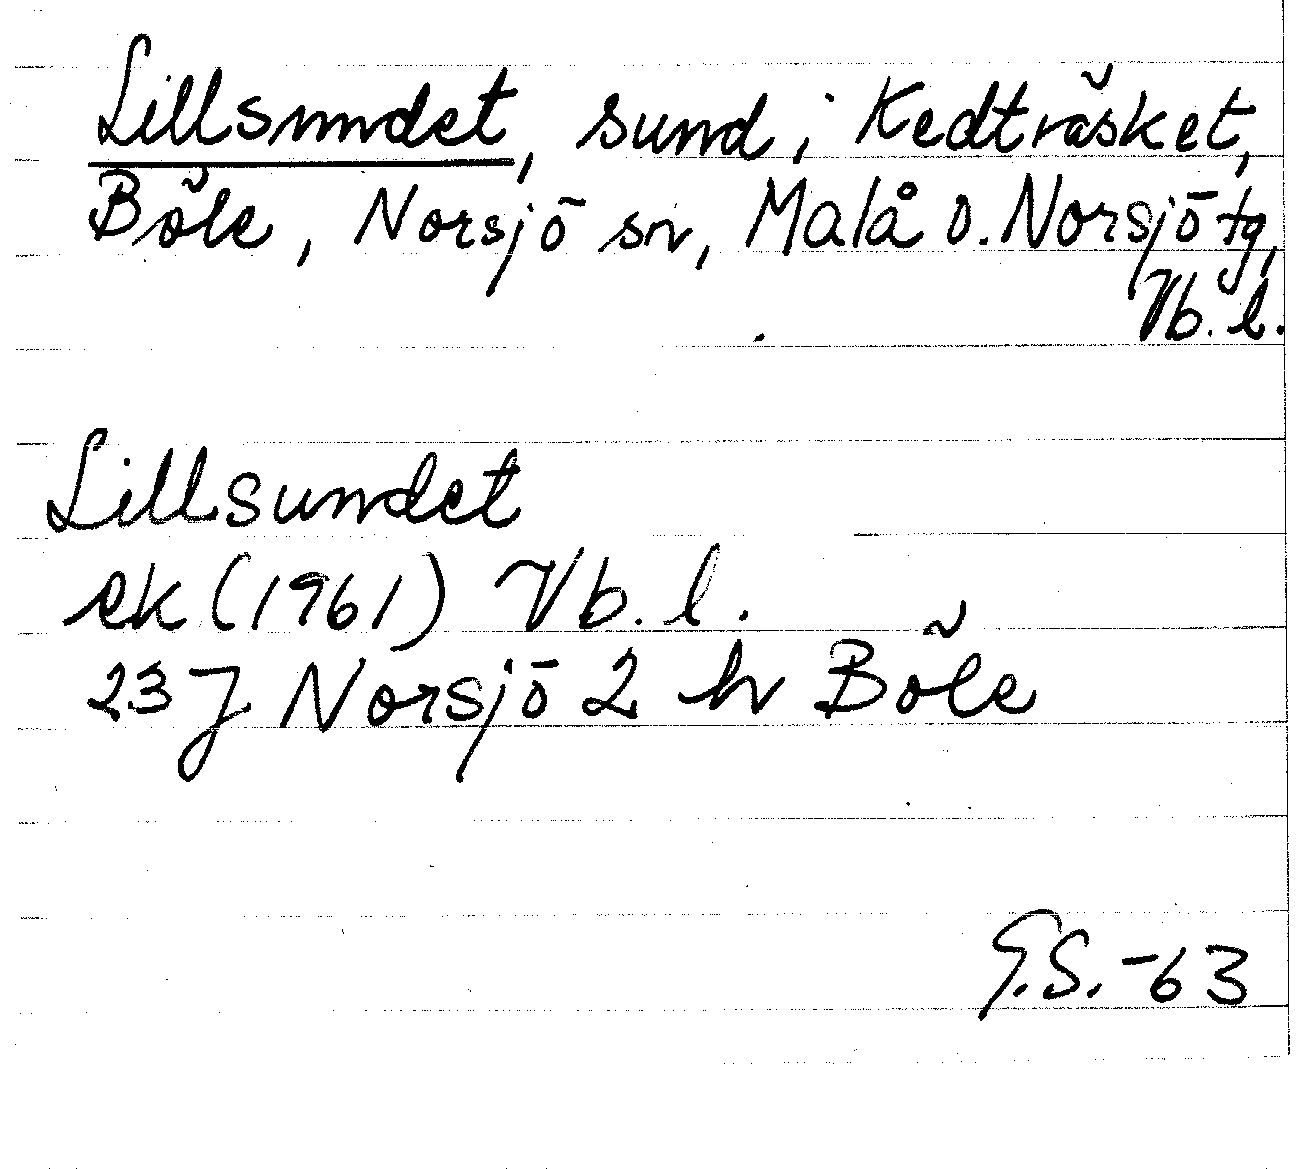 Lillsundet, sund i Kedträsket,
Böle, Norsjö sn, Malå o. Norsjö tg,
Vb. l.
Lillsundet
ek (1961) Vb. l.
23 J Norsjö 2 h Böle
G.S.-63